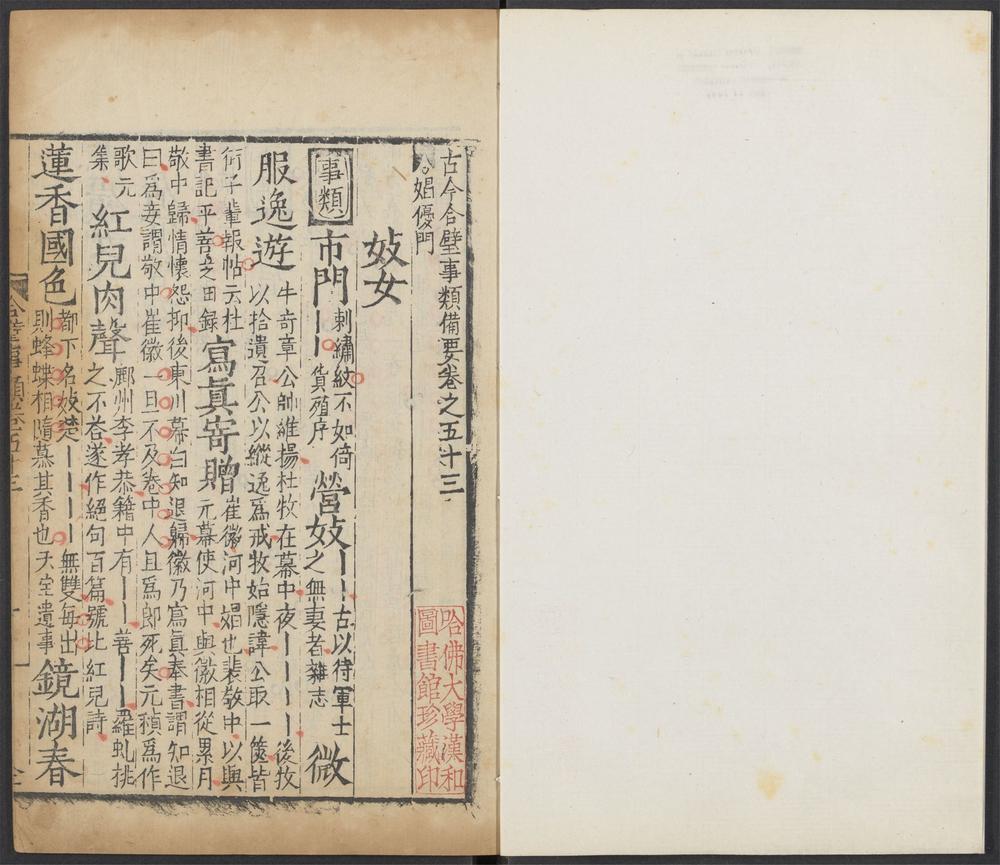 古今合璧事類備要卷之五十三
娼優門
妓女
事類
市門｜｜刺繡紋不如倚｜｜貨殖序
營妓｜｜古以待軍士之無妻者雜志
微服逸遊
牛奇章公帥維揚杜牧在幕中夜｜｜｜｜後牧以拾遺召公以縱逸爲戒牧始隱諱公取一篋皆
街子輩報帖云杜書記平善乏田録
寫真寄贈
崔徽河中娼也裴敬中以與元幕使河中與徽相從累月
敬中歸情懷怨抑後東川幕白知退歸徽乃寫真奉書謂知退
曰爲妾謂敬中崔徽一旦不及卷中人且爲郎死矣元稹爲作
歌元集
紅兒肉聲
鄜州李孝恭籍中有｜｜善｜｜羅虬挑之不荅遂作絕句百篇號比紅兒詩
蓮香國色
都下名妓楚｜｜｜｜無雙每出則蜂蝶相隨慕其香也天宝遺事
鏡湖春
哈佛大學漢和
圖書館珍藏印